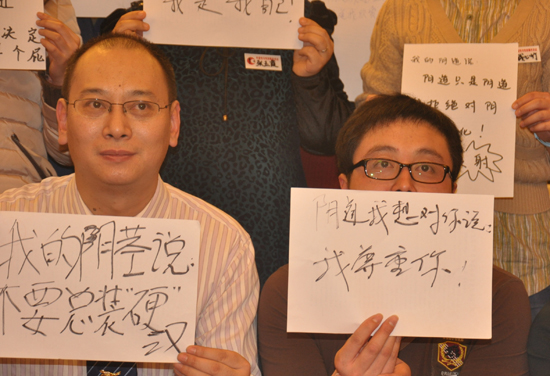 决定
个屁
我的阴道说
阴道只是阴道
拒绝对阴
化!
射
我的阴茎说:
不要总装“硬”
汉
阴道我想对你说:
我尊重你!